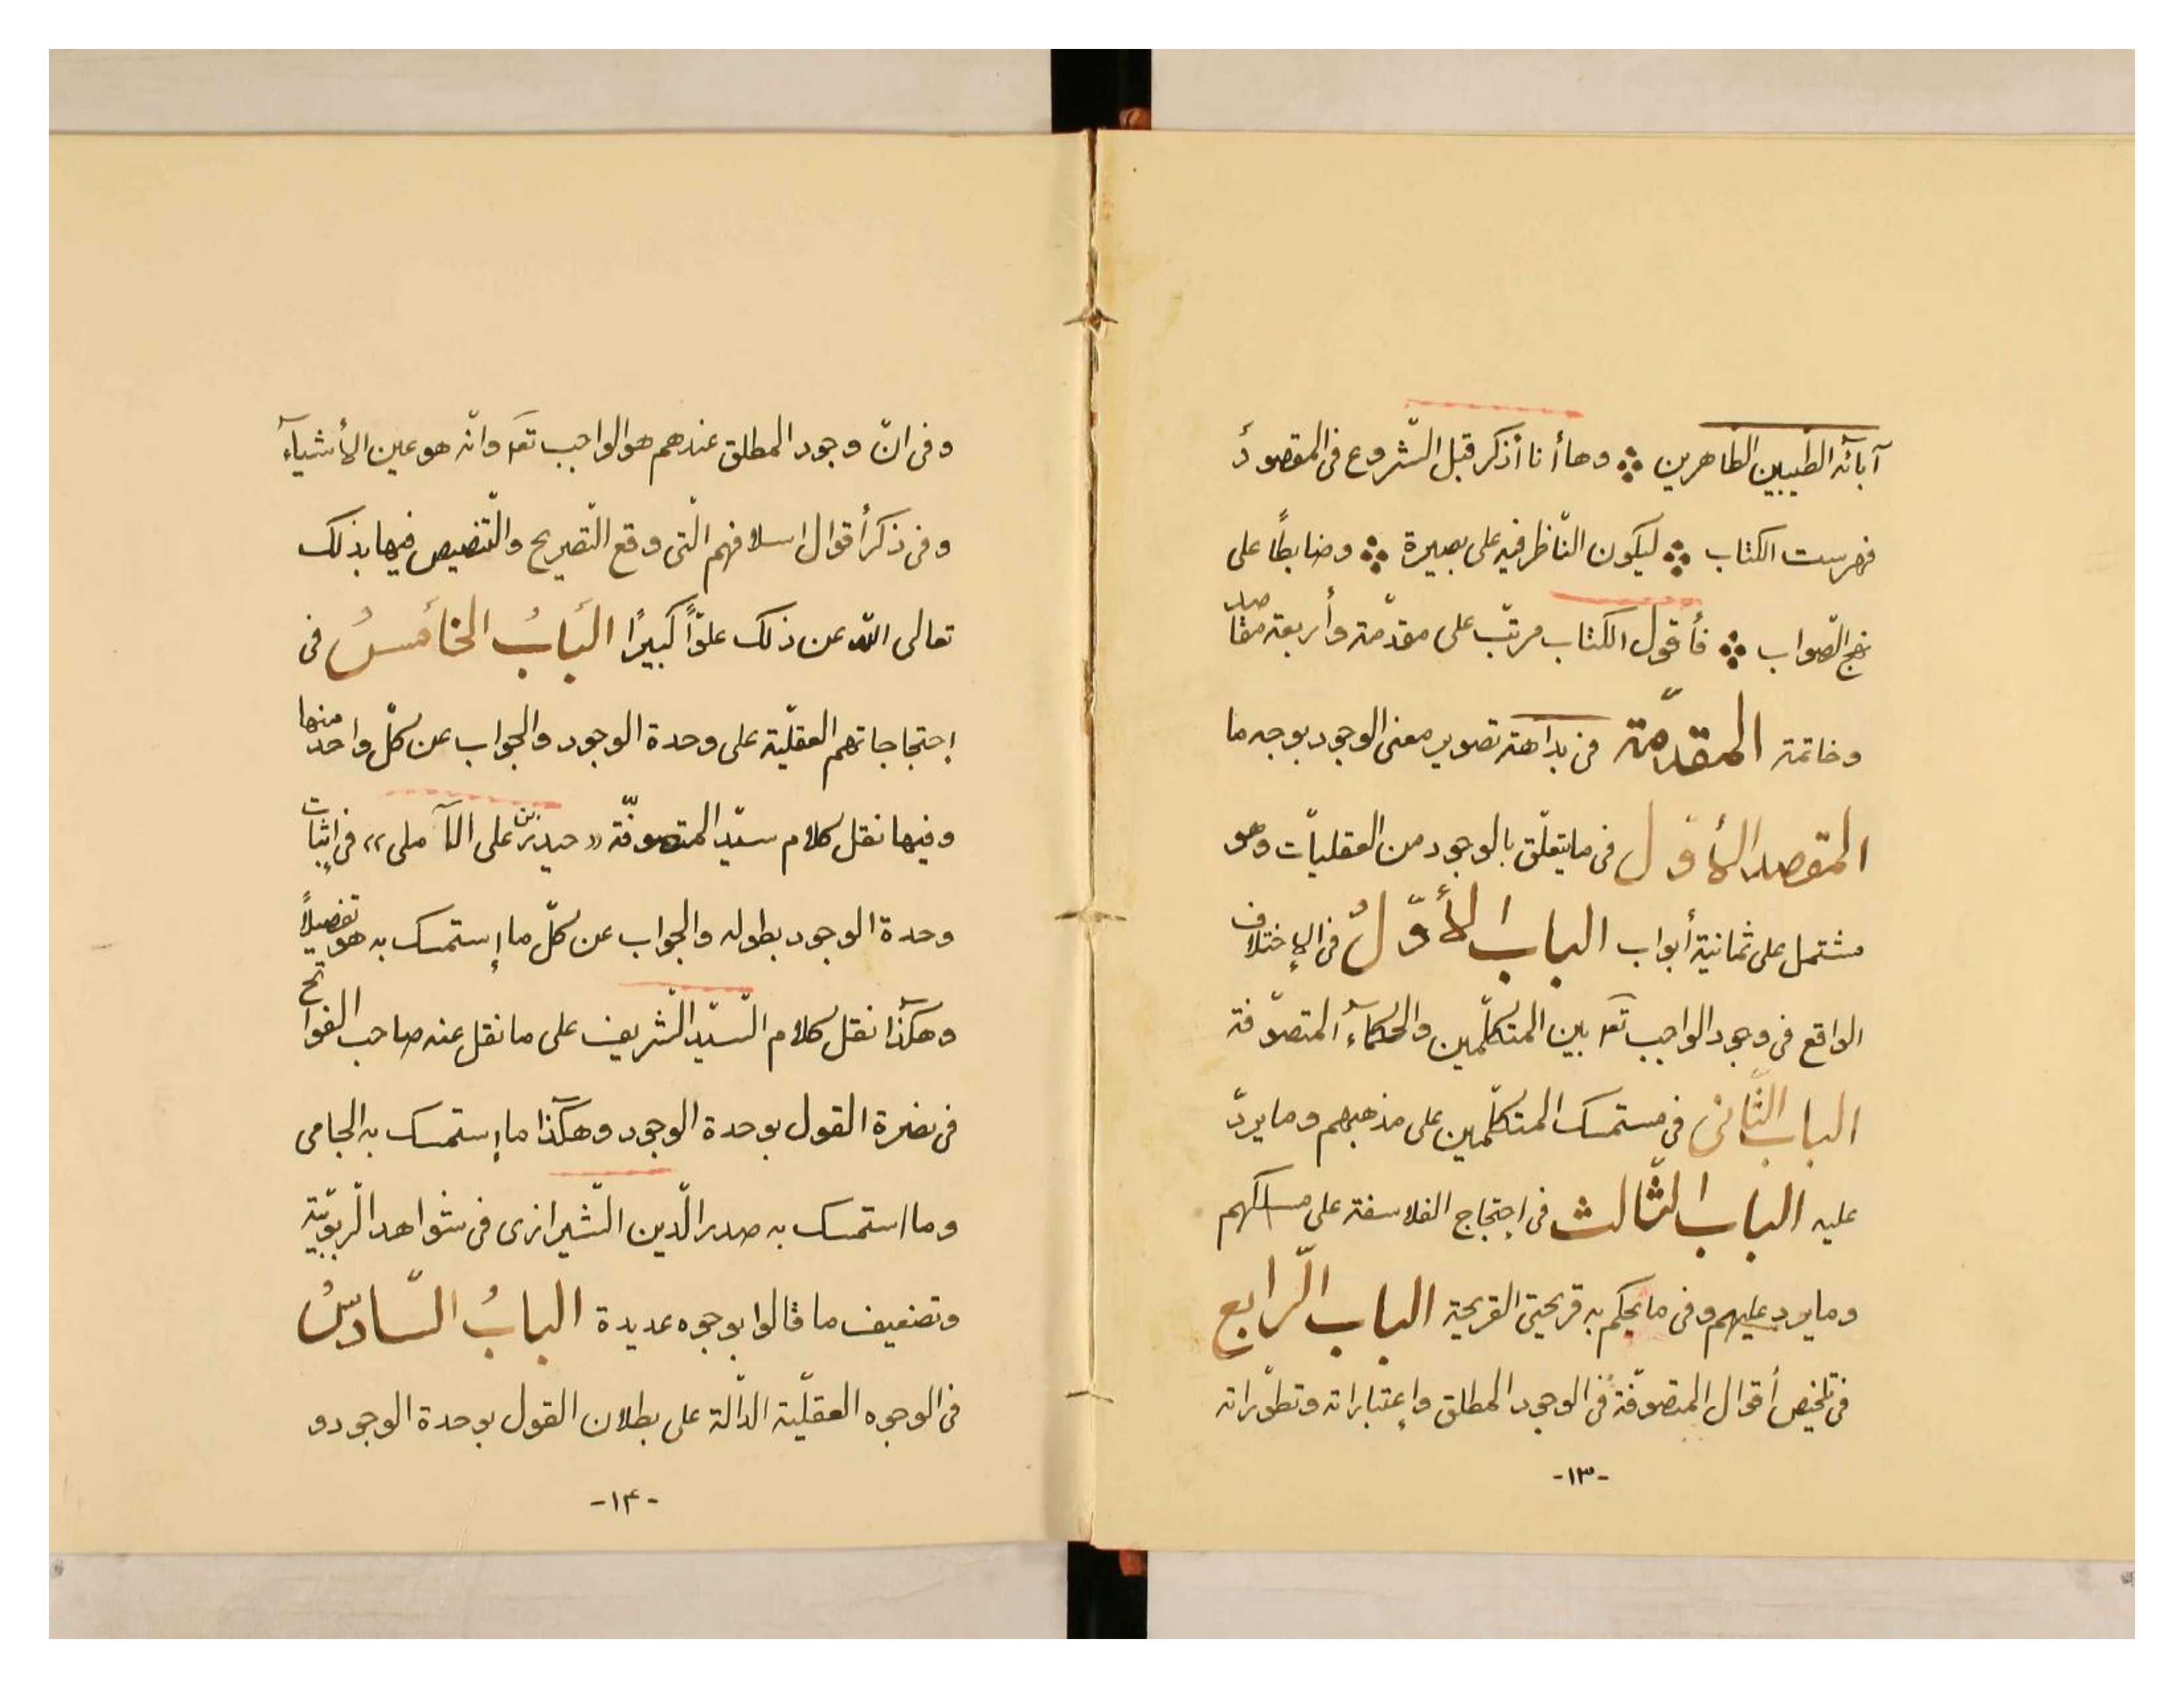 آبائه الطیبین الطاهرین ∴ وها أنا أذکر قبل الشّروع فی المقصود
فهرست الکتاب ∴ لیکون النّاظر فیه علی بصیرة ∴ وضابطاً علی
نهج الصّواب ∴ فأقول الکتاب مرتّب علی مقدّمة وأربعة مقاصد
وخاتمة المقدّمة فی بداهة تصویر معنی الوجود بوجه ما
المقصد الأوّل فی ما یتعلّق بالوجود من العقلیّات وهو
مشتمل علی ثمانیة أبواب الباب الأوّلُ فی الإختلاف
الواقع فی وجود الواجب تعٓ بین المتکلّمین والحکمآء المتصوّفة
الباب الثّانی فی مستمسک المتکلّمین علی مذهبهم وما یردّ
علیه الباب الثّالث فی إحتجاج الفلاسفة علی مسلکهم
وما یرد علیهم وفی ما یحکم به قریحتی القریحة الباب الرّابع
فی تلخیص أقوال المتصوّفة فی الوجود المطلق وإعتباراته وتطوّراته
-١٣-
وفی انّ وجود المطلق عندهم هو الواجب تعٓ وانّه هو عین الأشیآء
وفی ذکر أقوال اسلافهم الّتی وقع التّصریح والتّنصیص فیها بذلک
تعالی اللّه عن ذلک علوّاً کبیرًا البَابُ الخَامسُ فی
إحتجاجاتهم العقلیّة علی وحدة الوجود والجواب عن کلّ واحد منها
وفیها نقل کلام سیّد المتصوفّة «حیدر بن علی الآملی» فی إثبات
وحدة الوجود بطوله والجواب عن کلّ ما إستمسک به هو تفصیلاً
وهکذٓا نقل کلام السّیّد الشّریف علی ما نقل عنه صاحب الفواتح
فی نصرة القول بوحدة الوجود وهکذٓا ما إستمسک به الجامی
وما استمسک به صدر الدّین الشّیرازی فی شواهد الرّبوبیّة
وتضعیف ما قالوا بوجوه عدیدة البابُ السّادسُ
فی الوجوه العقلیّة الدّالّة علی بطلان القول بوحدة الوجود و
-١۴-